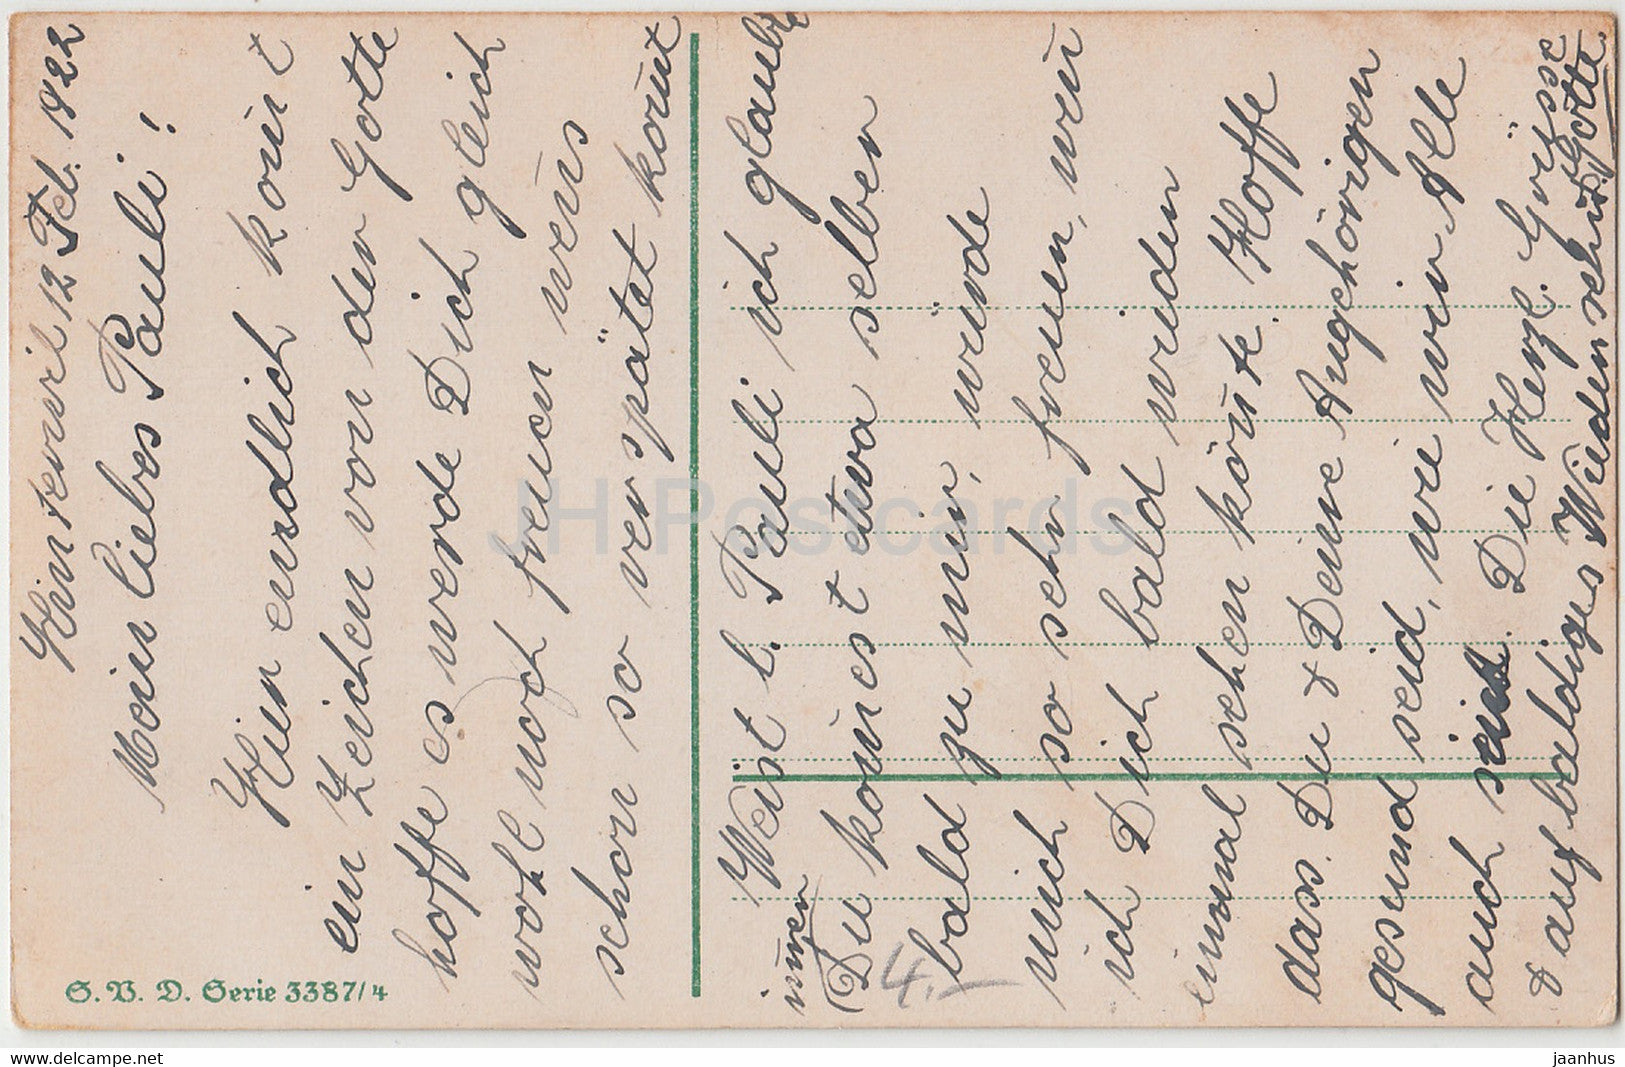 Hintenwil 12 Feb. 1922
Mein liebes Pauli!
Hier endlich kom̄t
ein Zeichen von der Gotte
hoffe es werde Dich gleich
wohl noch freuen wen̄s
schon so verspätet kom̄t
Weist l. Pauli ich glaubte
im̄er
Du kom̄est etwa selben
bald zu mir, würde
mich so sehr freuen, wen̄
ich Dich bald wieder
einmal sehen kön̄te Hoffe
dass Du & Deine Angehörigen
gesund seid, wie wir Alle
auch sind. Die Herzl. Grüsse
& auf baldiges Wiedersehn
Gotte
S. V. D. Serie 3387/4
4.-
JH Postcards
www.delcampe.net
jaanhus